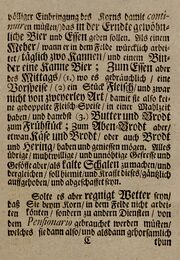 völliger Einbringung des Korns damit conti-
nuiren müsten / das in der Erndte gewöhn-
liche Bier und Essen geben sollen. Als einem
Meher / wann er in dem Felde würcklich arbei-
tet / täglich zwo Kannen / und einem Bin-
der eine Kanne Bier; Zum Essen aber
des Mittags / (1.) wo es gebräuchlich / eine
Vorspeise / (2.) ein Stück Fleisch / und zwar
nicht von zweyerley Art / wie sie sonsten also kei-
ne gedoppelte Fleisch-Speise / in einer Mahlzeit
haben / und damebst (3.) Butter und Brodt
zum Frühstück; Zum Abend-Brodt aber /
etwan Käse und Brodt; oder auch Brodt
und Hering / haben und geniessen mögen. Alles
übrige / muthwillige / und unnöthige Gesöffe und
Gefösse aus kalte Schalen zu machen / und
dergleichen / soll hiemit / und Krafft dieses / gäntzlich
auffgehoben / und abgeschafft seyn.
Solte es aber regnigt Wetter seyn /
daß Sie beym Korn / in dem Felde nicht arbei-
ten könten / sondern zu andern Diensten / von
dem Pensionario gebrauchet werden müsten /
welches sie dann also / und alsdann gehorsamlich
C
thun